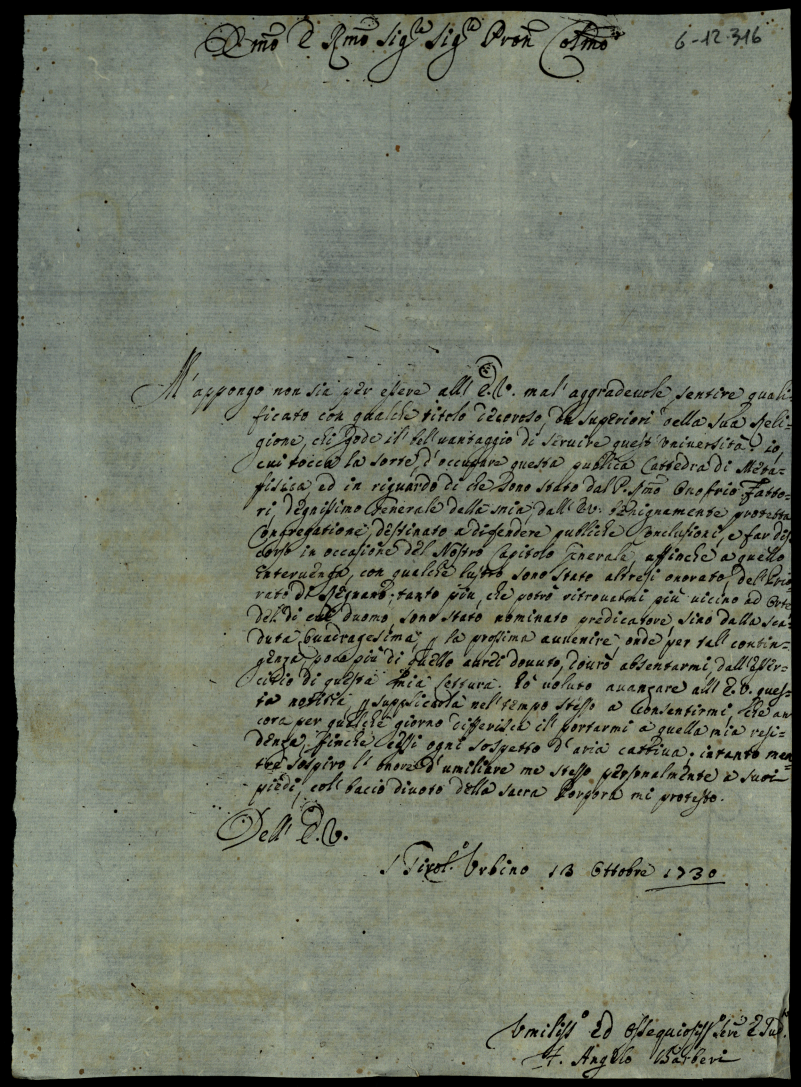 Emo e Rmo Sigre Sigre Pron Colmo
6-12.316
M'appongo non sia per essere all' E.V. mal'aggradevole sentire quali-
ficato con qualche titolo decoroso da superiori della sua Reli-
gione, chi gode il bell'vantaggio di servire quest'Università. Io,
cui tocca la sorte d'occupare questa publica Cattedra di Meta-
fisica, ed in riguardo di che sono stato dal P. Rmo Onofrio Fatto-
ri, degnissimo Generale della mia, dall' E.V. benignamente protetta
Congregatione, destinato a difendere publiche Conclusioni, e far dis-
corso in occasione del Nostro Capitolo Generale, affinche a quello
intervenga, con qualche lustro, sono stato altresi onorato del Prio-
rato di; tanto più, che potrò ritrovarmi più vicino ad Orte
del di cui duomo, sono stato nominato predicatore, sino dalla sca-
duta Quadragesima, p la prossima avvenire, onde per tal contin-
genza, poco più di quello avrei dovuto, dovrò absentarmi dall'Eser-
citio di questa mia Lettura. Hò voluto avanzare all' E.V. ques-
ta notitia, p supplicarla nell'tempo stesso a consentirmi, che an-
cora per qualche giorno differisca il portarmi a quella mia resi-
denza, finche cessi ogni sospetto d'aria cattiva; intanto men-
tre sospiro l'onore d'umiliare me stesso personalmente a suoi
piedi, coll'bacio divoto della sacra Porpora mi protesto.
Dell' E.V.
Urbino 13 Ottobre 1730
Umilisso ed Ossequiosisso Serve
F. Angelo Barberi